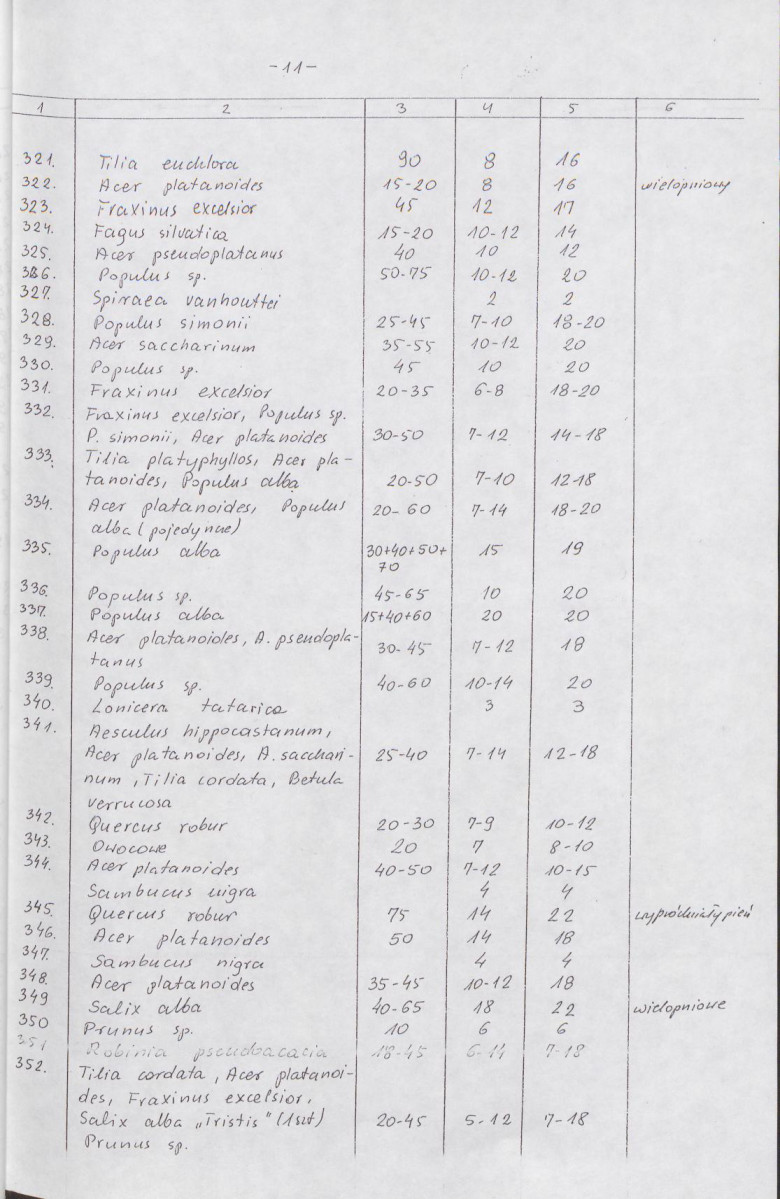 -11-
1 2 3 4 5 6
321. Tilia euchlora 90 8 16
322. Acer platanoides 15-20 8 16 wielopniowy
323. Fraxinus excelsior 45 12 17
324. Fagus silvatica 15-20 10-12 14
325. Acer pseudoplatanus 40 10 12
326. Populus sp. 50-75 10-12 20
327. Spiraea vanhouttei 2 2
328. Populus simonii 25-45 7-10 18-20
329. Acer saccharinum 35-55 10-12 20
330. Populus sp. 45 10 20
331. Fraxinus excelsior 20-35 6-8 18-20
332. Fraxinus excelsior, Populus sp.
P. simonii, Acer platanoides 30-50 7-12 14-18
333. Tilia platyphyllos, Acer pla-
tanoides, Populus alba 20-50 7-10 12-18
334. Acer platanoides, Populus 20-60 7-14 18-20
alba (pojedyncze)
335. Populus alba 30+40+50+ 15 19
70
336. Populus sp. 45-65 10 20
337. Populus alba 15+40+60 20 20
338. Acer platanoides, A. pseudopla-
tanus 30-45 7-12 18
339. Populus sp. 40-60 10-14 20
340. Lonicera tatarica 3 3
341. Aesculus hippocastanum,
Acer platanoides, A. sacchari- 25-40 7-14 12-18
num, Tilia cordata, Betula
verrucosa
342. Quercus robur 20-30 7-9 10-12
343. Owocowe 20 7 8-10
344. Acer platanoides 40-50 7-12 10-15
Sambucus nigra 4 4
345. Quercus robur 75 14 22 wypróchniały pień
346. Acer platanoides 50 14 18
347. Sambucus nigra 4 4
348. Acer platanoides 35-45 10-12 18
349 Salix alba 40-65 18 22 wielopniowe
350 Prunus sp. 10 6 6
351 Robinia pseudoacacia 18-45 6-14 7-18
352. Tilia cordata, Acer platanoi-
des, Fraxinus excelsior,
Salix alba „Tristis" (1szt) 20-45 5-12 7-18
Prunus sp.